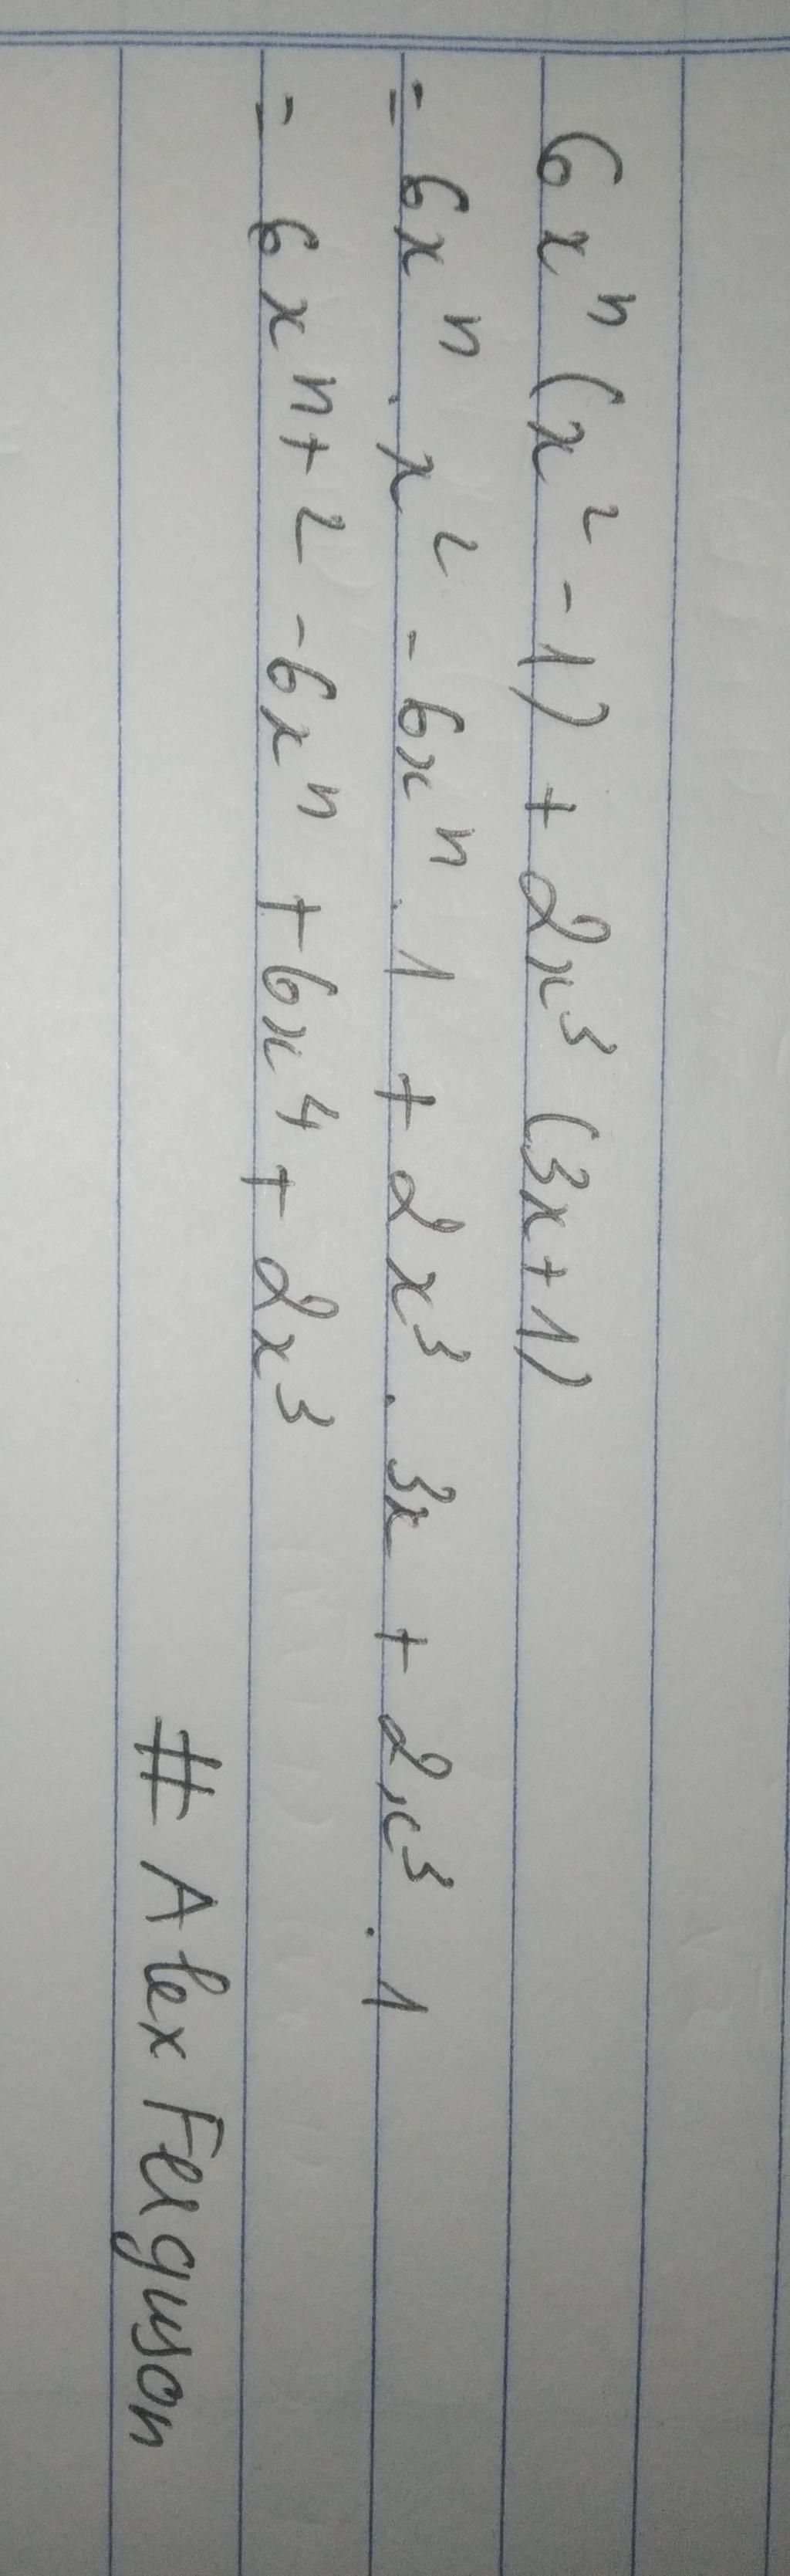 6xⁿ (x² - 1) + 2x³ (3x + 1)
= 6xⁿ . x² - 6xⁿ . 1 + 2x³ . 3x + 2x³ . 1
= 6xⁿ⁺² - 6xⁿ + 6x⁴ + 2x³
# Alex Ferguson